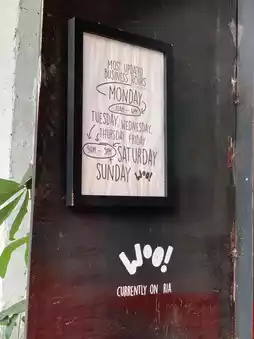 MOST UPDATED
BUSINESS HOURS
MONDAY
TUESDAY, WEDNESDAY,
THURSDAY, FRIDAY
SATURDAY
SUNDAY WOO!
WOO!
CURRENTLY ON RIA